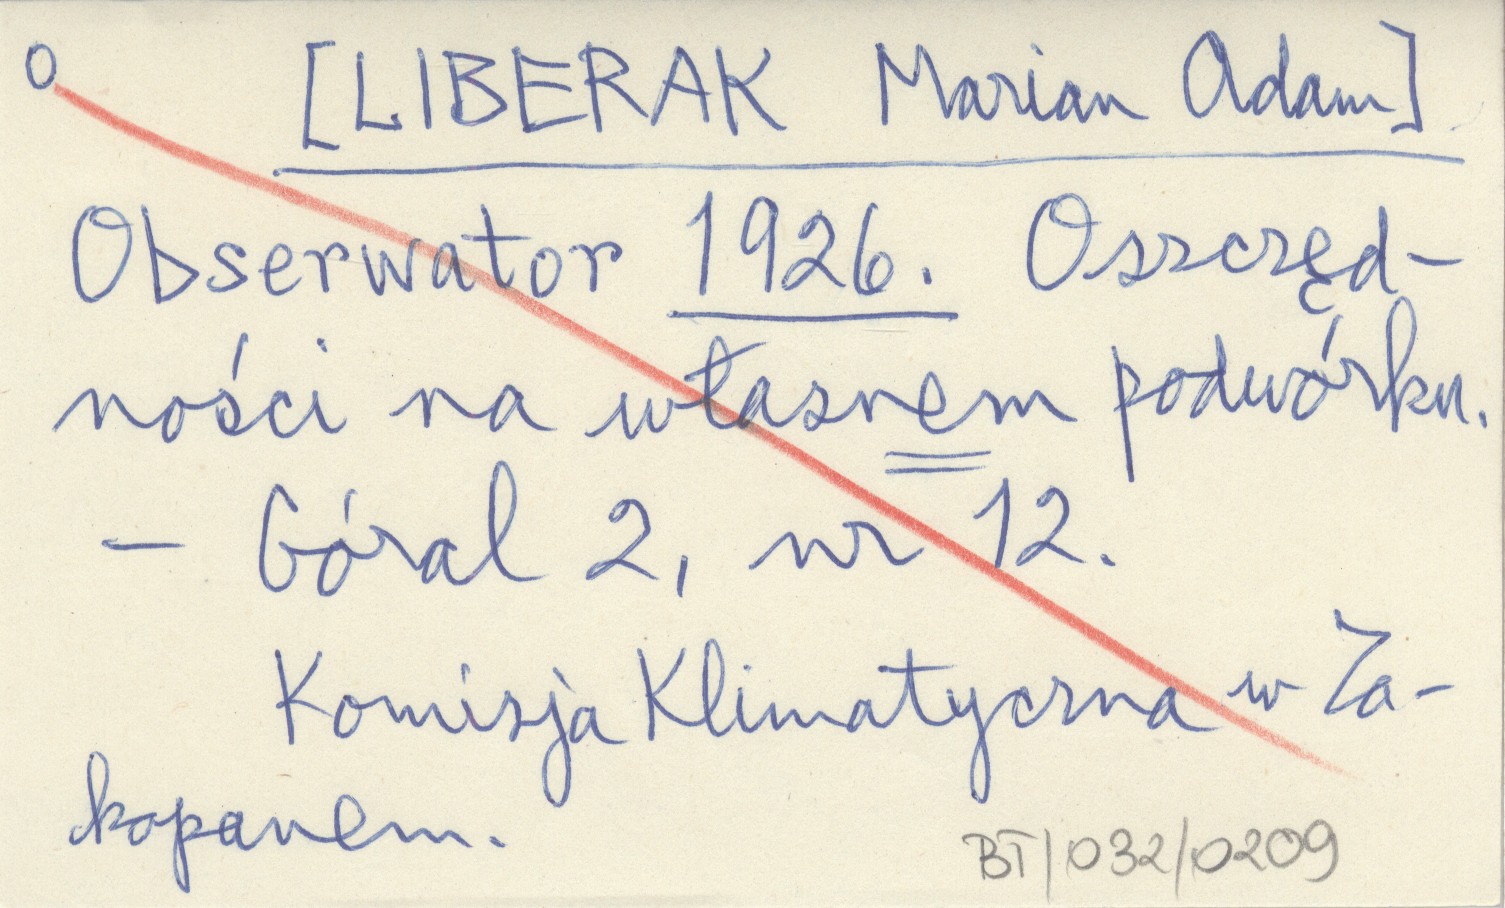 O [LIBERAK Marian Adam]
Obserwator 1926. Oszczęd-
ności na własnem podwórku.
- Góral 2, nr 12.
Komisja Klimatyczna w Za-
kopanem.
BT/032/0209